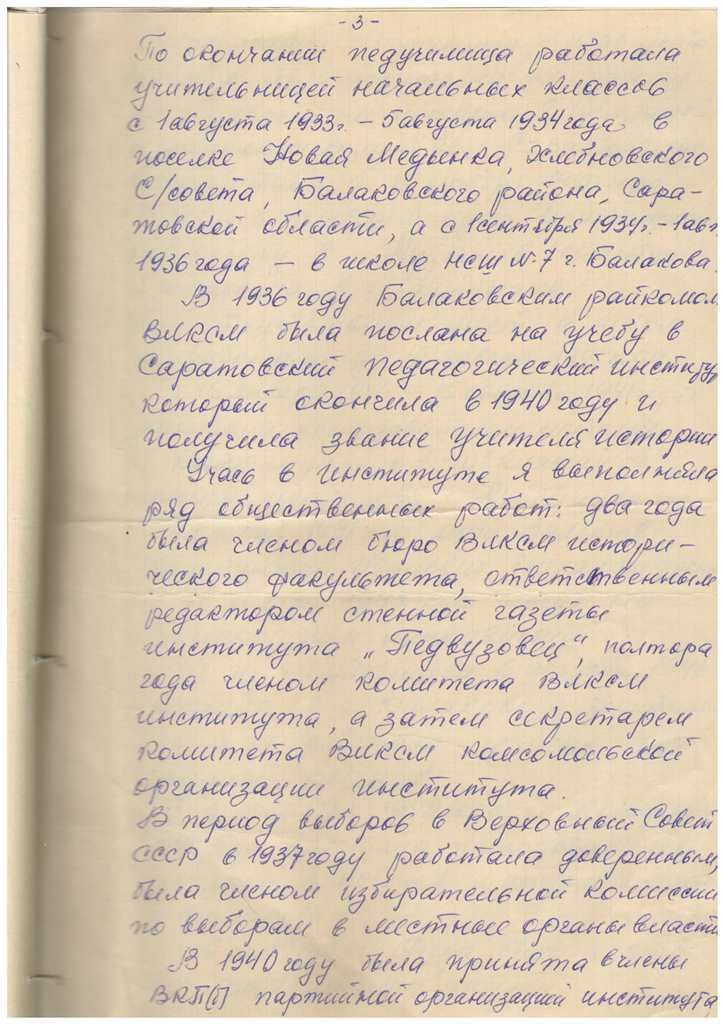 - 3 -
По окончании педучилища работала
учительницей начальных классов
с 1 августа 1933 г. - 5 августа 1934 года в
поселке Новая Медынка, Хлебновского
С/совета, Балаковского района, Сара-
товской области, а с 1 сентября 1934 г. - 1 авг.
1936 года - в школе НСШ № 7 г. Балакова.
В 1936 году Балаковским райкомом
ВЛКСМ была послана на учебу в
Саратовский педагогический институт,
который окончила в 1940 году и
получила звание учителя истории
Учась в институте я выполняла
ряд общественных работ: два года
была членом бюро ВЛКСМ истори-
ческого факультета, ответственным
редактором стенной газеты
института „Педвузовец“, полтора
года членом комитета ВЛКСМ
института, а затем секретарем
комитета ВЛКСМ комсомольской
организации института.
В период выборов в Верховный Совет
СССР в 1937 году работала доверенным,
была членом избирательной комиссии
по выборам в местные органы власти
В 1940 году была принята в члены
ВКП(б) партийной организацией института